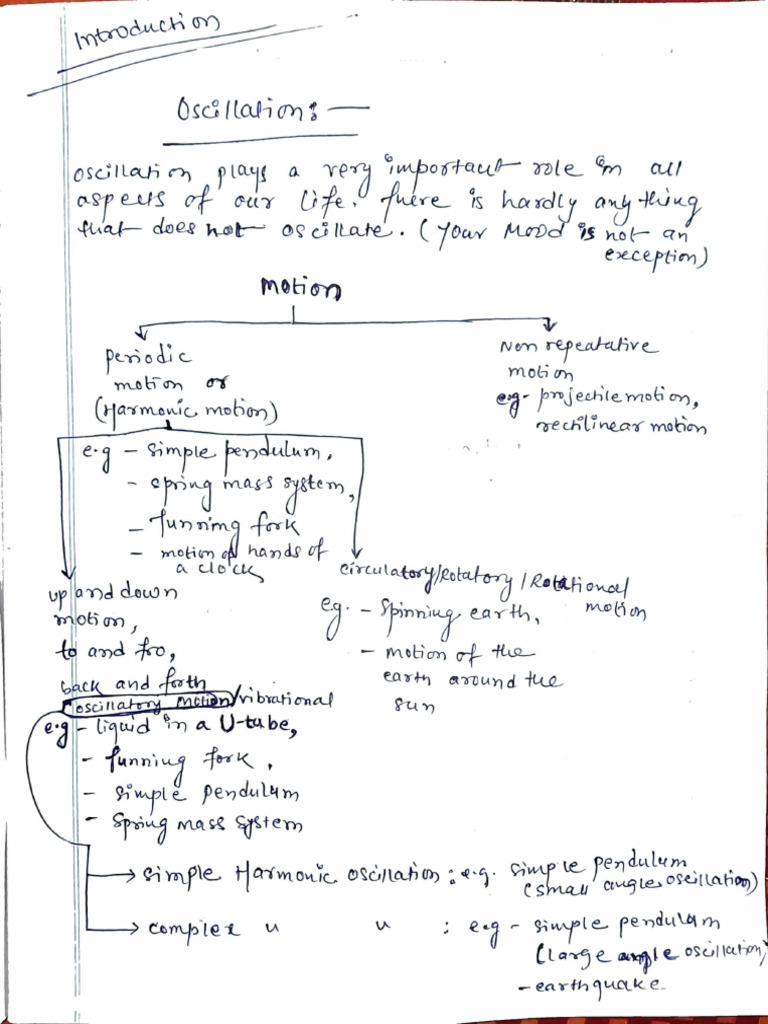 Introduction
Oscillation:—
oscillation plays a very important role in all
aspects of our life. There is hardly any thing
that does not oscillate. (Your MOOD is not an
exception)
Motion
periodic
motion or
(Harmonic motion)
Non repeatative
motion
e.g- projectile motion,
rectilinear motion
e.g - simple pendulum,
- spring mass system,
- Tunning fork
- motion of hands of
a clock
up and down
motion,
to and fro,
back and forth
oscillatory motion/vibrational
e.g - liquid in a U-tube,
- Tunning fork,
- simple pendulum
- spring mass system
circulatory/Rotatory/Rotational
motion
eg. - spinning earth,
- motion of the
earth around the
sun
simple Harmonic oscillation: e.g. simple pendulum
(small angle oscillation)
complex " " : e.g - simple pendulum
(large angle oscillation)
- earthquake